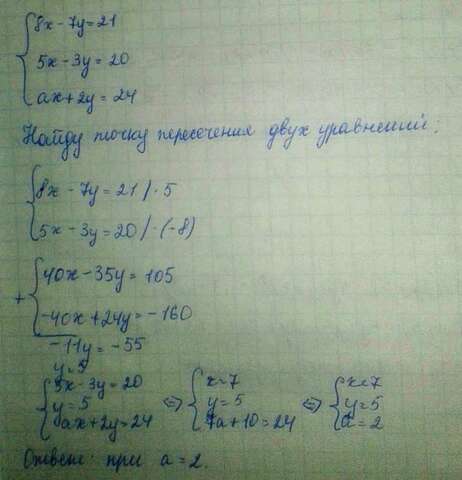 8x - 7y = 21
5x - 3y = 20
ax + 2y = 24
Найду точку пересечения двух уравнений:
8x - 7y = 21 / · 5
5x - 3y = 20 / · (-8)
40x - 35y = 105
+
-40x + 24y = -160
-11y = -55
y = 5
5x - 3y = 20 x = 7 x = 7
y = 5 ⇔ y = 5 ⇔ y = 5
ax + 2y = 24 7a + 10 = 24 a = 2
Ответ: при a = 2.